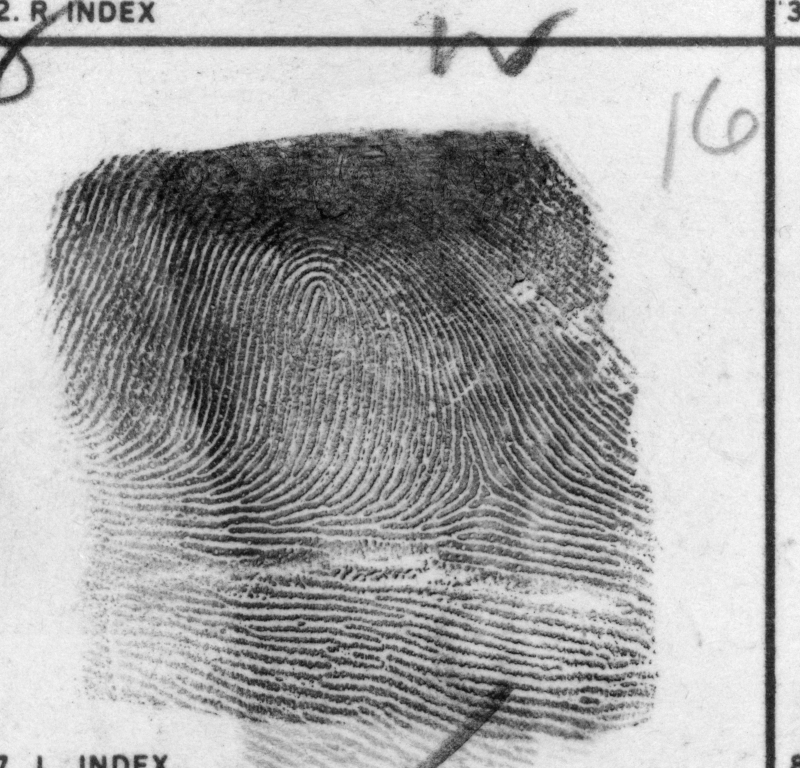 2. R. INDEX
3
W
16
7. L. INDEX
8